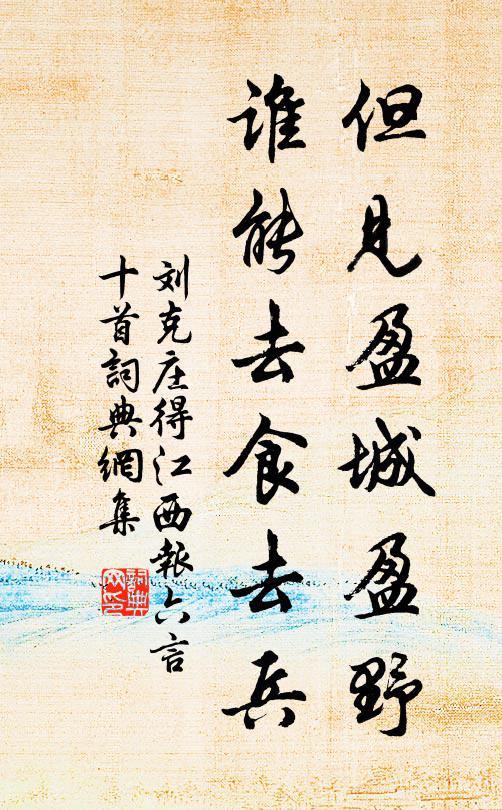 但见盈城盈野
谁能去食去兵
刘克庄得江西報六言
十首詞典網集